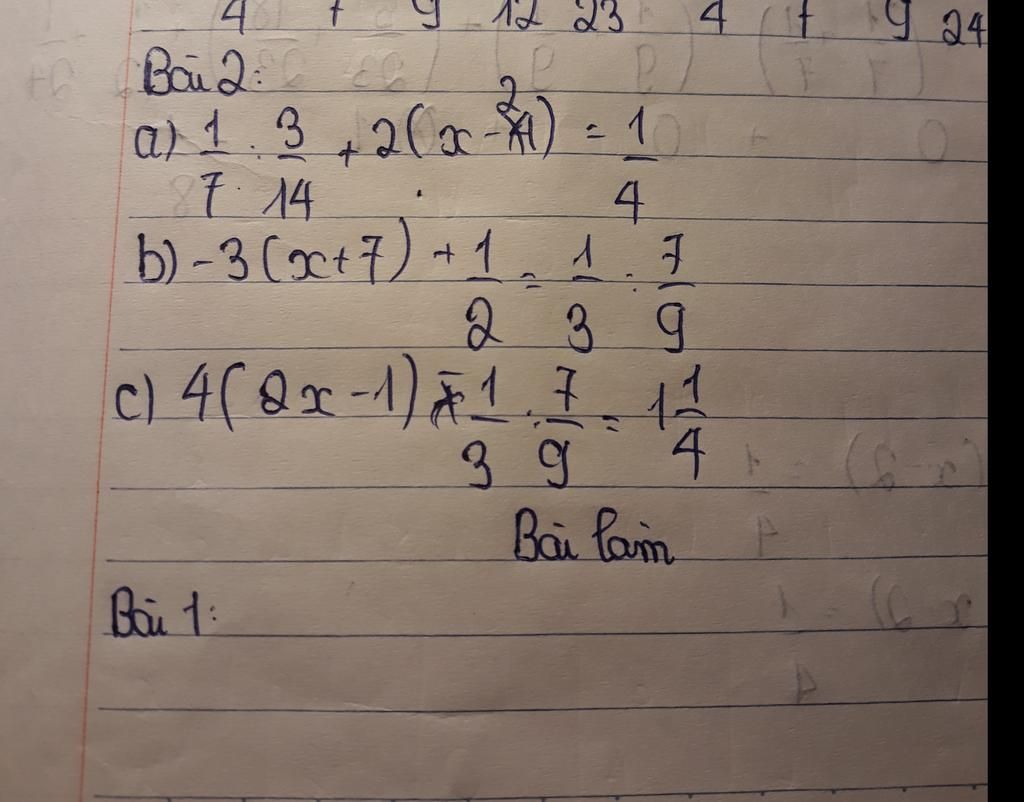 4 7 9 12 23 4 7 9 24
Bài 2:
a) 1/7 : 3/14 + 2(x - 2) = 1/4
b) -3(x+7) + 1/2 = 1/3 : 7/9
c) 4(2x-1) - 1/3 . 7/9 = 1 1/4
Bài làm
Bài 1: